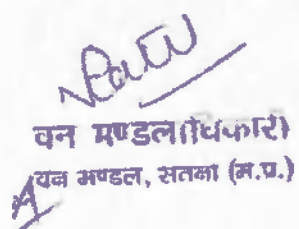 वन मण्डलाधिकारी
वन मण्डल, सतना (म.प्र.)